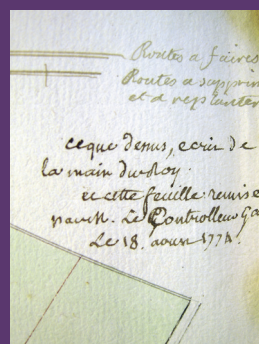 Routes a faires
Routes a supprim
et a replanter
ceque dessus, ecrit de
la main du Roy.
et cette feuille remise
par M. Le Controlleur Ga
Le 18. aoust 1774.